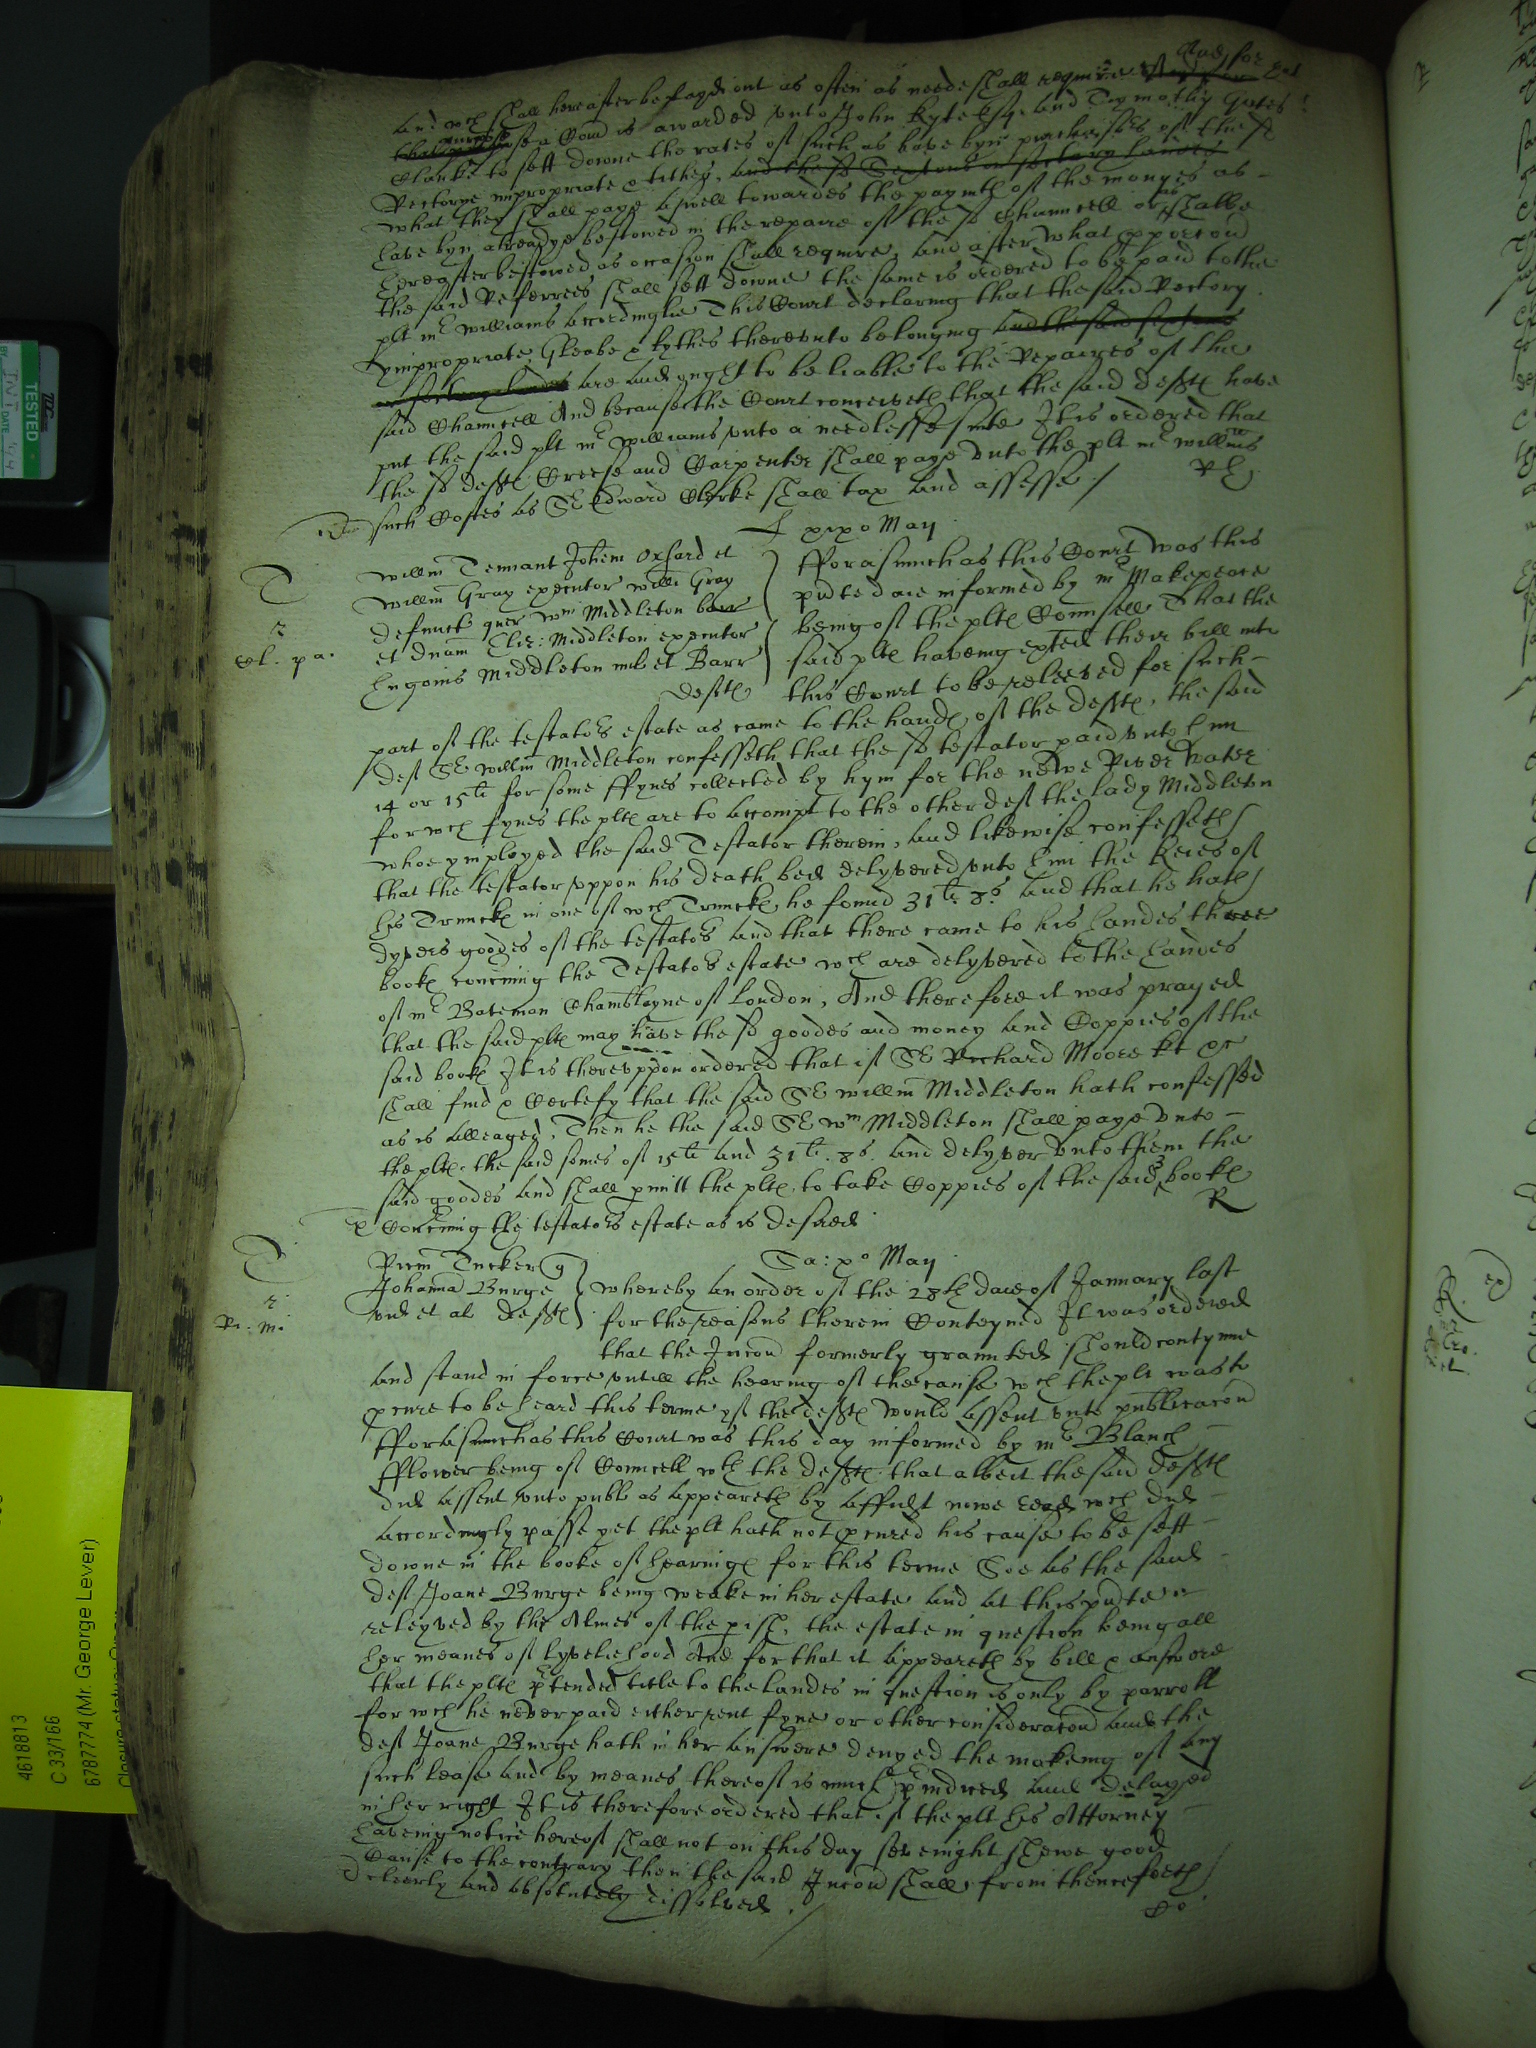 and wch shall hereafter be layd out as often as neede shall require And for
a Comn is awarded unto John Kyte Esqr and Tymothy Gates
Clarke to sett downe the rates of such as have byn purchasers of the sd
Rectorye impropriate & tithes, and the sd
what they shall paye aswell towardes the paymte of the monyes as
have byn alreadye bestowed in the repaire of the sd Chauncell or as shalbe
hereafter bestowed as occasion shall require, and after what pporcon
the said Referrees shall sett downe the same is ordered to be paid to the
plt mr Williams accordinglie This Court declaring that the said Rectory
ympropriate, Gleabe & tythes thereunto belonging and the said
are and ought to be liable to the Repaires of the
said Chauncell And because the Court conceiveth that the said defftes have
put the said plt mr Williams unto a needlesse suite It is ordered that
the sd defftes Creese and Carpenter shall paye unto the plt mr Willms
such Costes as Sr Edward Clerke shall tax and assesse /
xixo May
Willm Tennant Johem Orchard et
Willm Gray executor Willi Gray
defunct quer Wm Middleton barr
et Dnam Eliz: Middleton executor
Hugonis Middleton mil et Barr
defftes
T
r
el. pa.
Fforasmuch as this Court was this
pnte daie informed by mr Makepeace
being of the pltes Counsell That the
said pltes haveing exhted their bill into
this Court to be releeved for such
part of the testators estate as came to the handes of the defftes, the said
deft Sr Willm Middleton confesseth that the sd testator paid unto him
14 or 15li for some ffynes collected by hym for the newe River Water
for wch fynes the pltes are to accompt to the other deft the lady Middleton
whoe ymployed the said Testator therein, and likewise confesseth
that the testator uppon his death bed delyvered unto him the keies of
his Trunckes in one of wch Trunckes he found 31li 8s and that he hath
dyvers goodes of the testators and that there came to his handes three
bookes concerning the Testators estate wch are delyvered to the handes
of mr Bateman Chamblayne of London, And therefore it was prayed
that the said pltes may have the sd goodes and money and Coppies of the
said bookes It is thereuppon ordered that if Sr Richard Moore kt &c
shall find & Certefy that the said Sr Willm Middleton hath confessed
as is alleaged, Then he the said Sr Wm Middleton shall paye unto
the pltes the said somes of 15li and 31li 8s and delyver unto them the
said goodes and shall pmitt the pltes to take Coppies of the said 3 bookes
Concerning the testators estate as is desired
R
T
r
Ri. mi.
Ricum Tucker q
Johanna Burge
vid et al defftes
Sa: xo May
Whereby an order of the 28th daie of January last
for the reasons therein Conteyned It was ordered
that the Incon formerly graunted should contynue
and stand in force untill the hearing of the cause wch the plt was to
pcure to be heard this terme yf the defftes would assent unto publicacon
Fforasmuch as this Court was this day informed by mr Blanch
Fflower being of Councell wth the defftes that albeit the said defftes
did assent unto publ as appeareth by affidt nowe read wch did
accordingly passe yet the plt hath not pcured his cause to be sett
downe in the booke of hearinges for this terme Soe as the said
deft Joane Burge being weake in her estate and at this pnte
releyved by the Almes of the pish, the estate in question being all
her meanes of lyveliehood And for that it appeareth by bill & answere
that the pltes ptended title to the landes in question is only by parroll
for wch he never paid either rent fyne or other consideracon and the
deft Joane Burge hath in her answere denyed the makeing of any
such lease and by meanes thereof is much piudiced and delayed
in her right It is therefore ordered that if the plt his Attorney
haveing notice hereof shall not on this day sevenight shewe good
Cause to the contrary then the said Incon shall from thenceforth
cleerly and absolutely dissolved. /
TESTED
DATE
4618813
C 33/166
6787774 (Mr. George Lever)